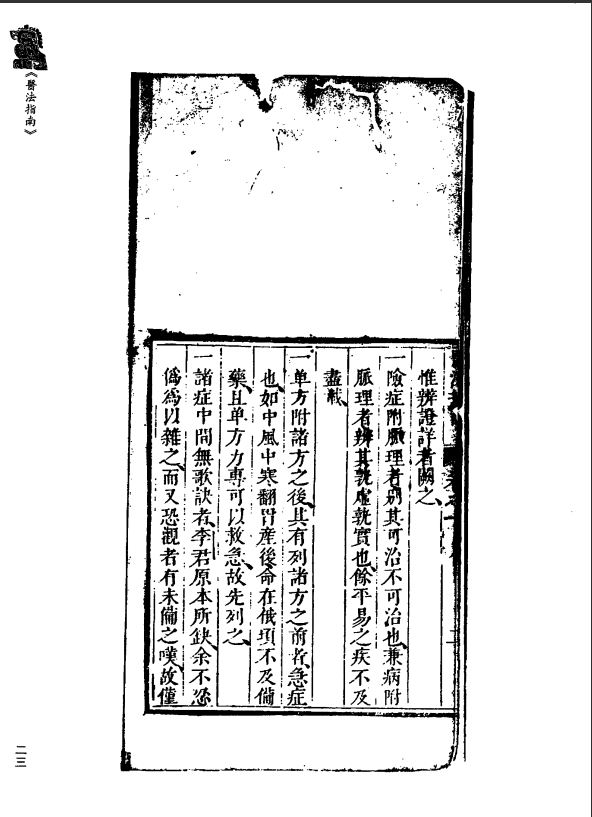 《醫法指南》
惟辨證詳者闕之
一險症附脈理者別其可治不可治也兼病附
脈理者辨其孰虛孰實也餘平易之疾不及
盡載
一单方附諸方之後其有列諸方之前者急症
也如中風中寒翻胃産後命在俄頃不及偹
藥且单方力專可以救急故先列之
一諸症中間無歌訣者李君原本所缺余不忍
僞爲以雜之而又恐觀者有未偹之嘆故僅
二三